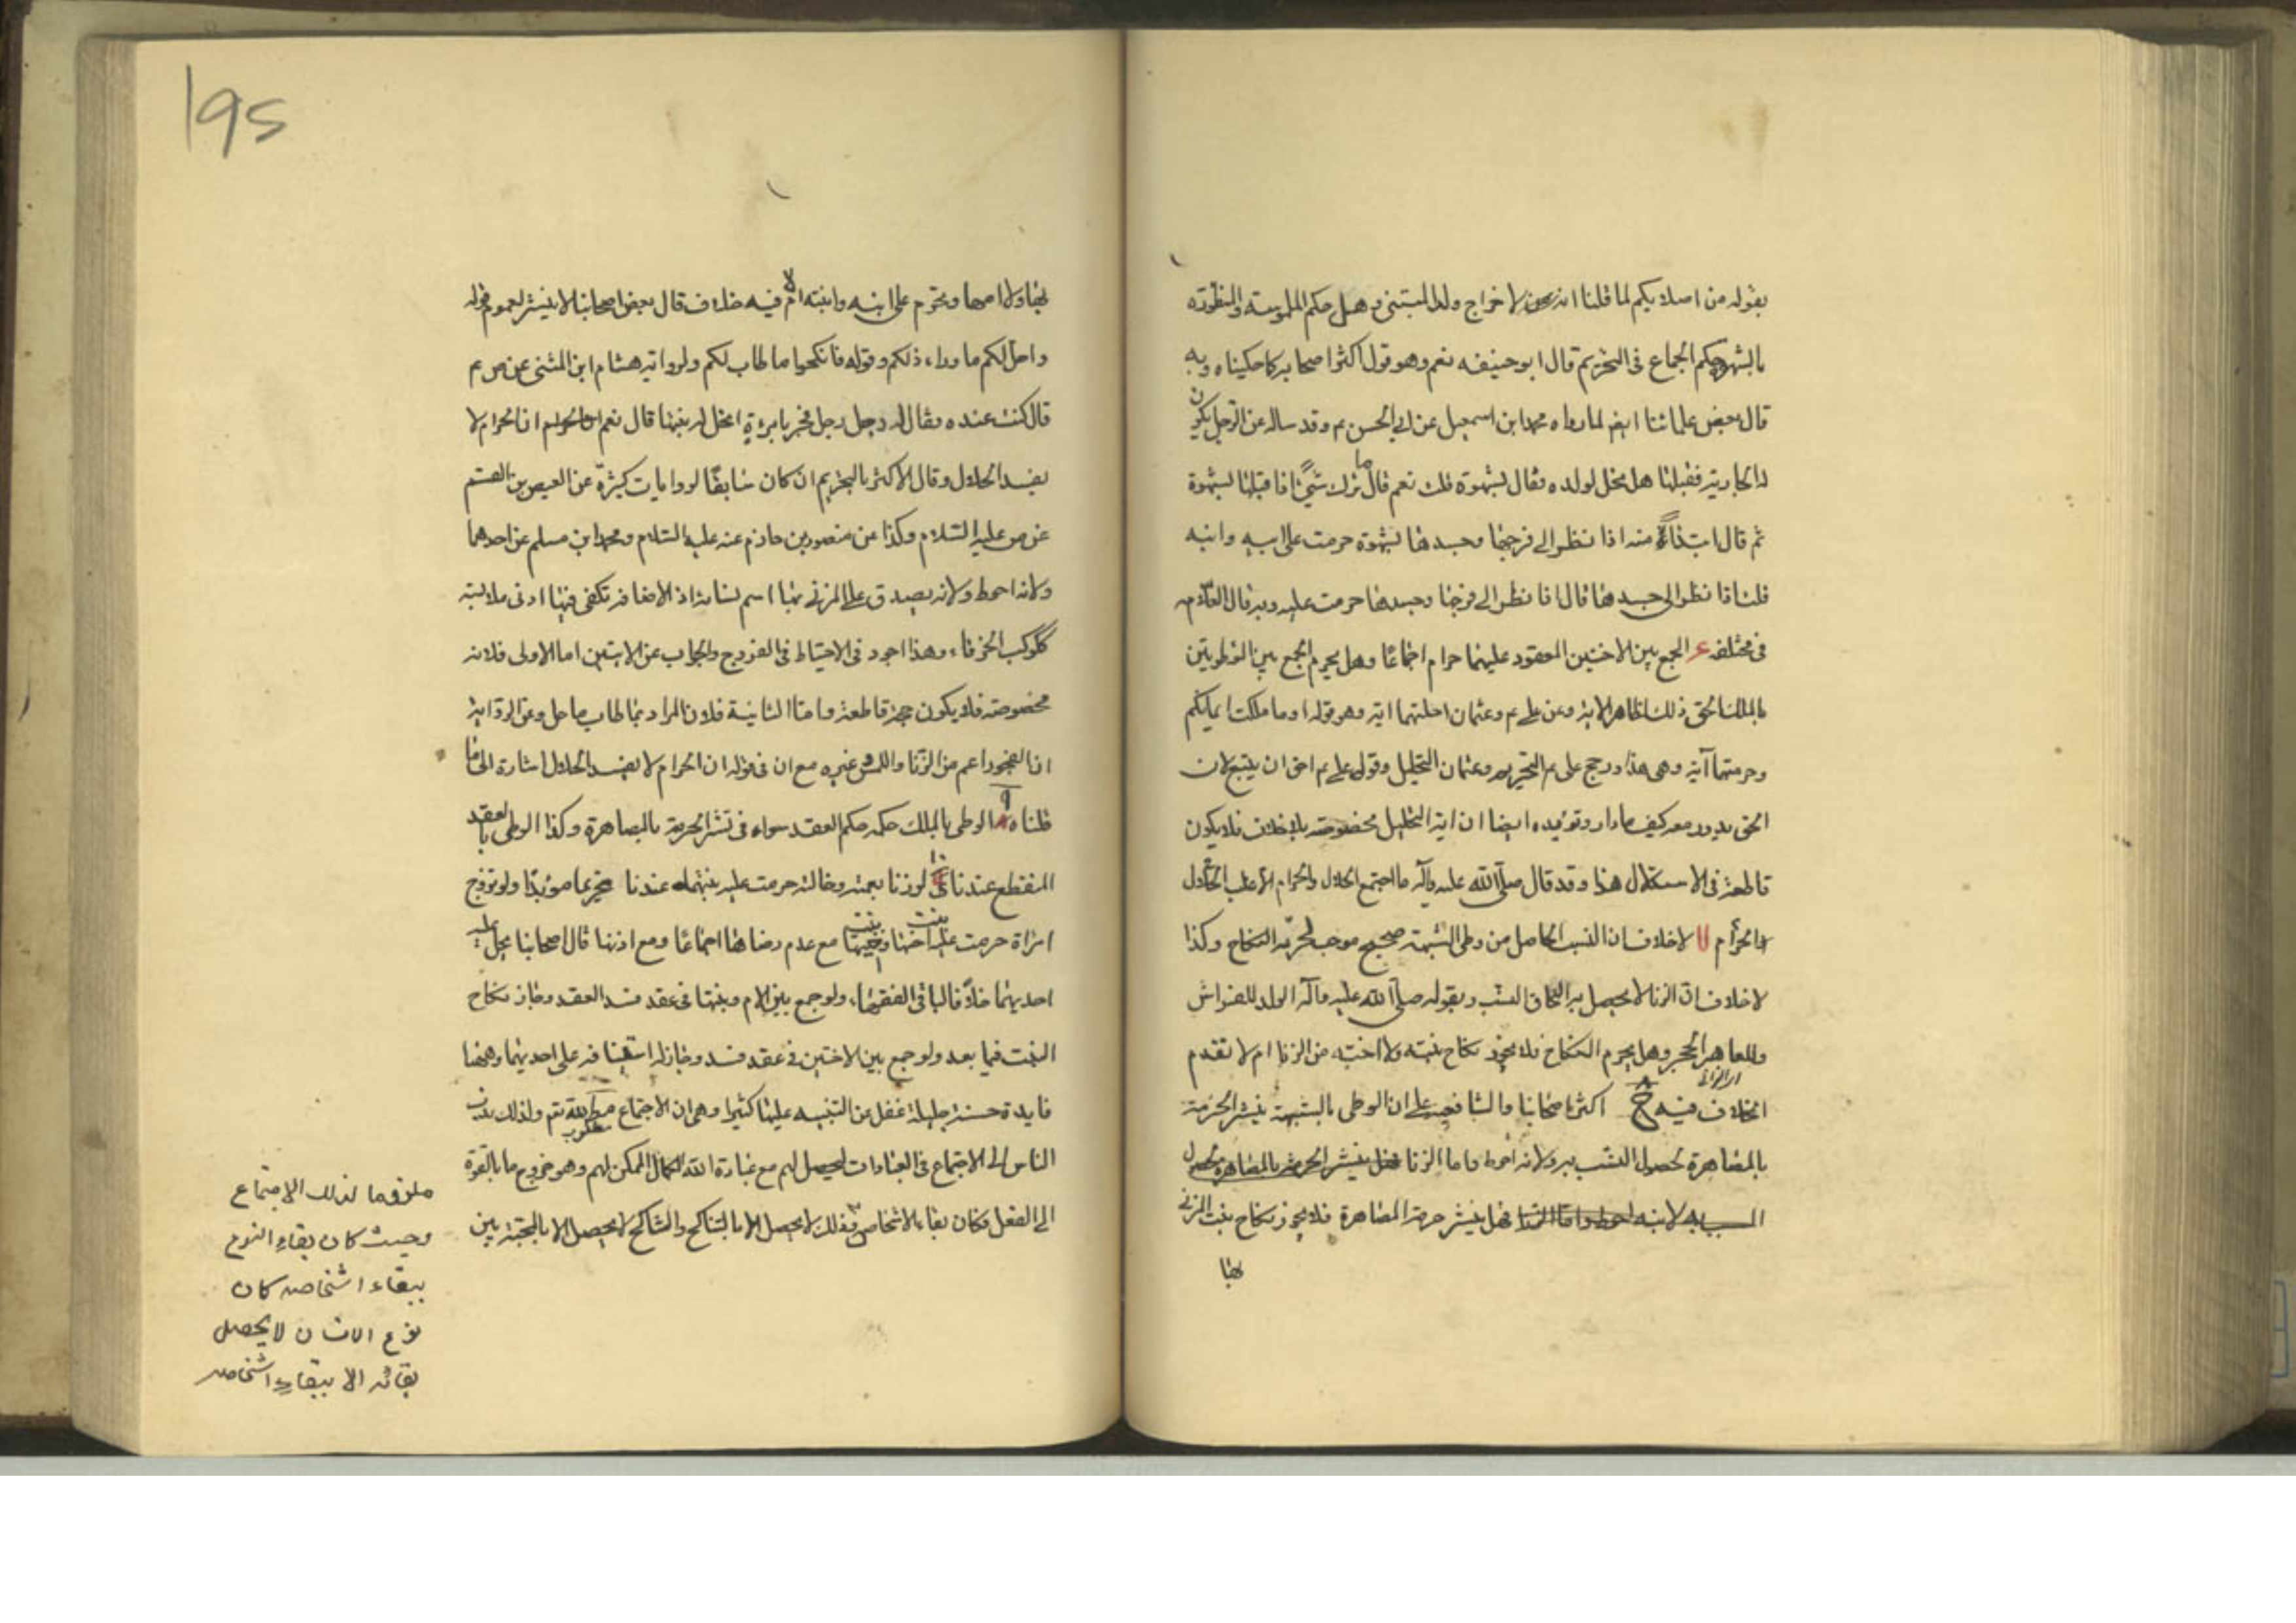 بقوله من اصلابكم لما قلنا انه لاخراج ولد المتبنى وهل حكم الملموسة والمنظورة
بالشهوة حكم الجماع فى التحريم قال ابوحنيفه نعم وهو قول اكثر اصحابه كما حكيناه وبه
قال بعض علمائنا ايضا لما رواه محمد ابن اسمعيل عن ابى الحسن ع وقد ساله عن الرجل يكون
له الجارية فقبلها هل تحل لولده فقال بشهوة قلت نعم قال ما ترك شيئا اذا قبلها بشهوة
ثم قال ابتداء منه اذا نظر الى فرجها وجسدها بشهوة حرمت على ابيه وابنه
قلت اذا نظر الى جسدها قال اذا نظر الى فرجها وجسدها حرمت عليه وبه قال العلامه
فى مختلفه الجمع بين الاختين المعقود عليهما حرام اجماعا وهل يحرم الجمع بين الموطوئتين
بالملك الحق ذلك لظاهر الاية وعن على ع وعثمان احلتهما اية وهو قوله او ما ملكت ايمانكم
وحرمتهما آية وهى هذا ورجح على ع التحريم وعثمان التحليل وقول على ع احق ان يتبع لان
الحق يدور معه كيف ما دار وتؤيده ايضا ان اية التحليل مخصوصة بلا خلاف فلا يكون
قاطعة فى الاستقلال هذا وقد قال صلى الله عليه وآله ما اجتمع الحلال والحرام الا غلب الحلال
الحرام لا خلاف ان النسب الحاصل من وطى الشبهة صحيح موجب لتحريم النكاح وكذا
لا خلاف ان الزنا لا يحصل به التحاق النسب وبقوله صلى الله عليه وآله الولد للفراش
وللعاهر الحجر وهل يحرم النكاح فلا يجوز نكاح بنته ولا اخته من الزنا ام لا تقدم
الخلاف فيه اكثر اصحابنا والشافعيه على ان الوطى بالشبهة ينشر الحرمة
بالمصاهرة لحصول النسب به ولانه احوط واما الزنا فهل ينشر الحرمة بالمصاهرة
فهل ينشر حرمة المصاهرة فلا يجوز نكاح بنت المزنى
بها
195
بها ولا امها وتحرم على ابنه وابنته ام لا فيه خلاف قال بعض اصحابنا لا ينشر لعموم قوله
واحل لكم ما وراء ذلكم وقوله فانكحوا ما طاب لكم ولرواية هشام ابن المثنى عن ص ع
قال كنت عنده فقال له رجل رجل فجر بامرءة اتحل له بنتها قال نعم ان الحرام لا
يفسد الحلال وقال الاكثر بالتحريم ان كان سابقا لروايات كثيرة عن العيص بن القسم
عن ص عليه السلام وكذا عن منصور بن حازم عنه عليه السلام ومحمد ابن مسلم عن احدهما
ولانه احوط ولانه يصدق على المزنى بها اسم نسائه اذ الاضافه تكفى فيها ادنى ملابسة
ككوكب الخرقاء وهذا اجود فى الاحتياط فى الفروج والجواب عن الايتين اما الاولى فلانه
مخصوصة فلا يكون حجة قاطعة واما الثانية فلان المراد بما طاب ما حل وعن الرواية
ان الفجور اعم من الزنا واللمس وغيره مع ان فى قوله ان الحرام لا يفسد الحلال اشارة الى ما
قلناه الوطى بالملك حكمه حكم العقد سواء فى نشر الحرمة بالمصاهرة وكذا الوطى بالعقد
المنقطع عندنا لو زنا بعمته وخالته حرمت عليه بنتهما عندنا تحريما مؤبدا ولو تزوج
امراة حرمت عليه بنت اختها وبنت اخيها مع عدم رضاها اجماعا ومع اذنها قال اصحابنا يحل عليه
احديهما خلافا لباقى الفقهاء ولو جمع بين الام وبنتها فى عقد فسد العقد وجاز نكاح
البنت فيما بعد ولو جمع بين الاختين فى عقد فسد وجاز له استينافه على احديهما وههنا
فايدة حسنة جليلة غفل عن التنبيه عليها كثير وهى ان الاجتماع مطلوب لله تع ولذلك ندب
الناس الى الاجتماع فى العبادات ليحصل لهم مع عبادة الله الكمال الممكن لهم وهو خروج ما بالقوة
الى الفعل فكان بقاء الاشخاص وذلك لا يحصل الا بالتناكح والتناكح لا يحصل الا بالمحبة بين
ملزوما لذلك الاجتماع
وحيث كان بقاء النوع
ببقاء اشخاصه كان
نوع الانسان لا يحصل
بقائه الا ببقاء اشخاصه